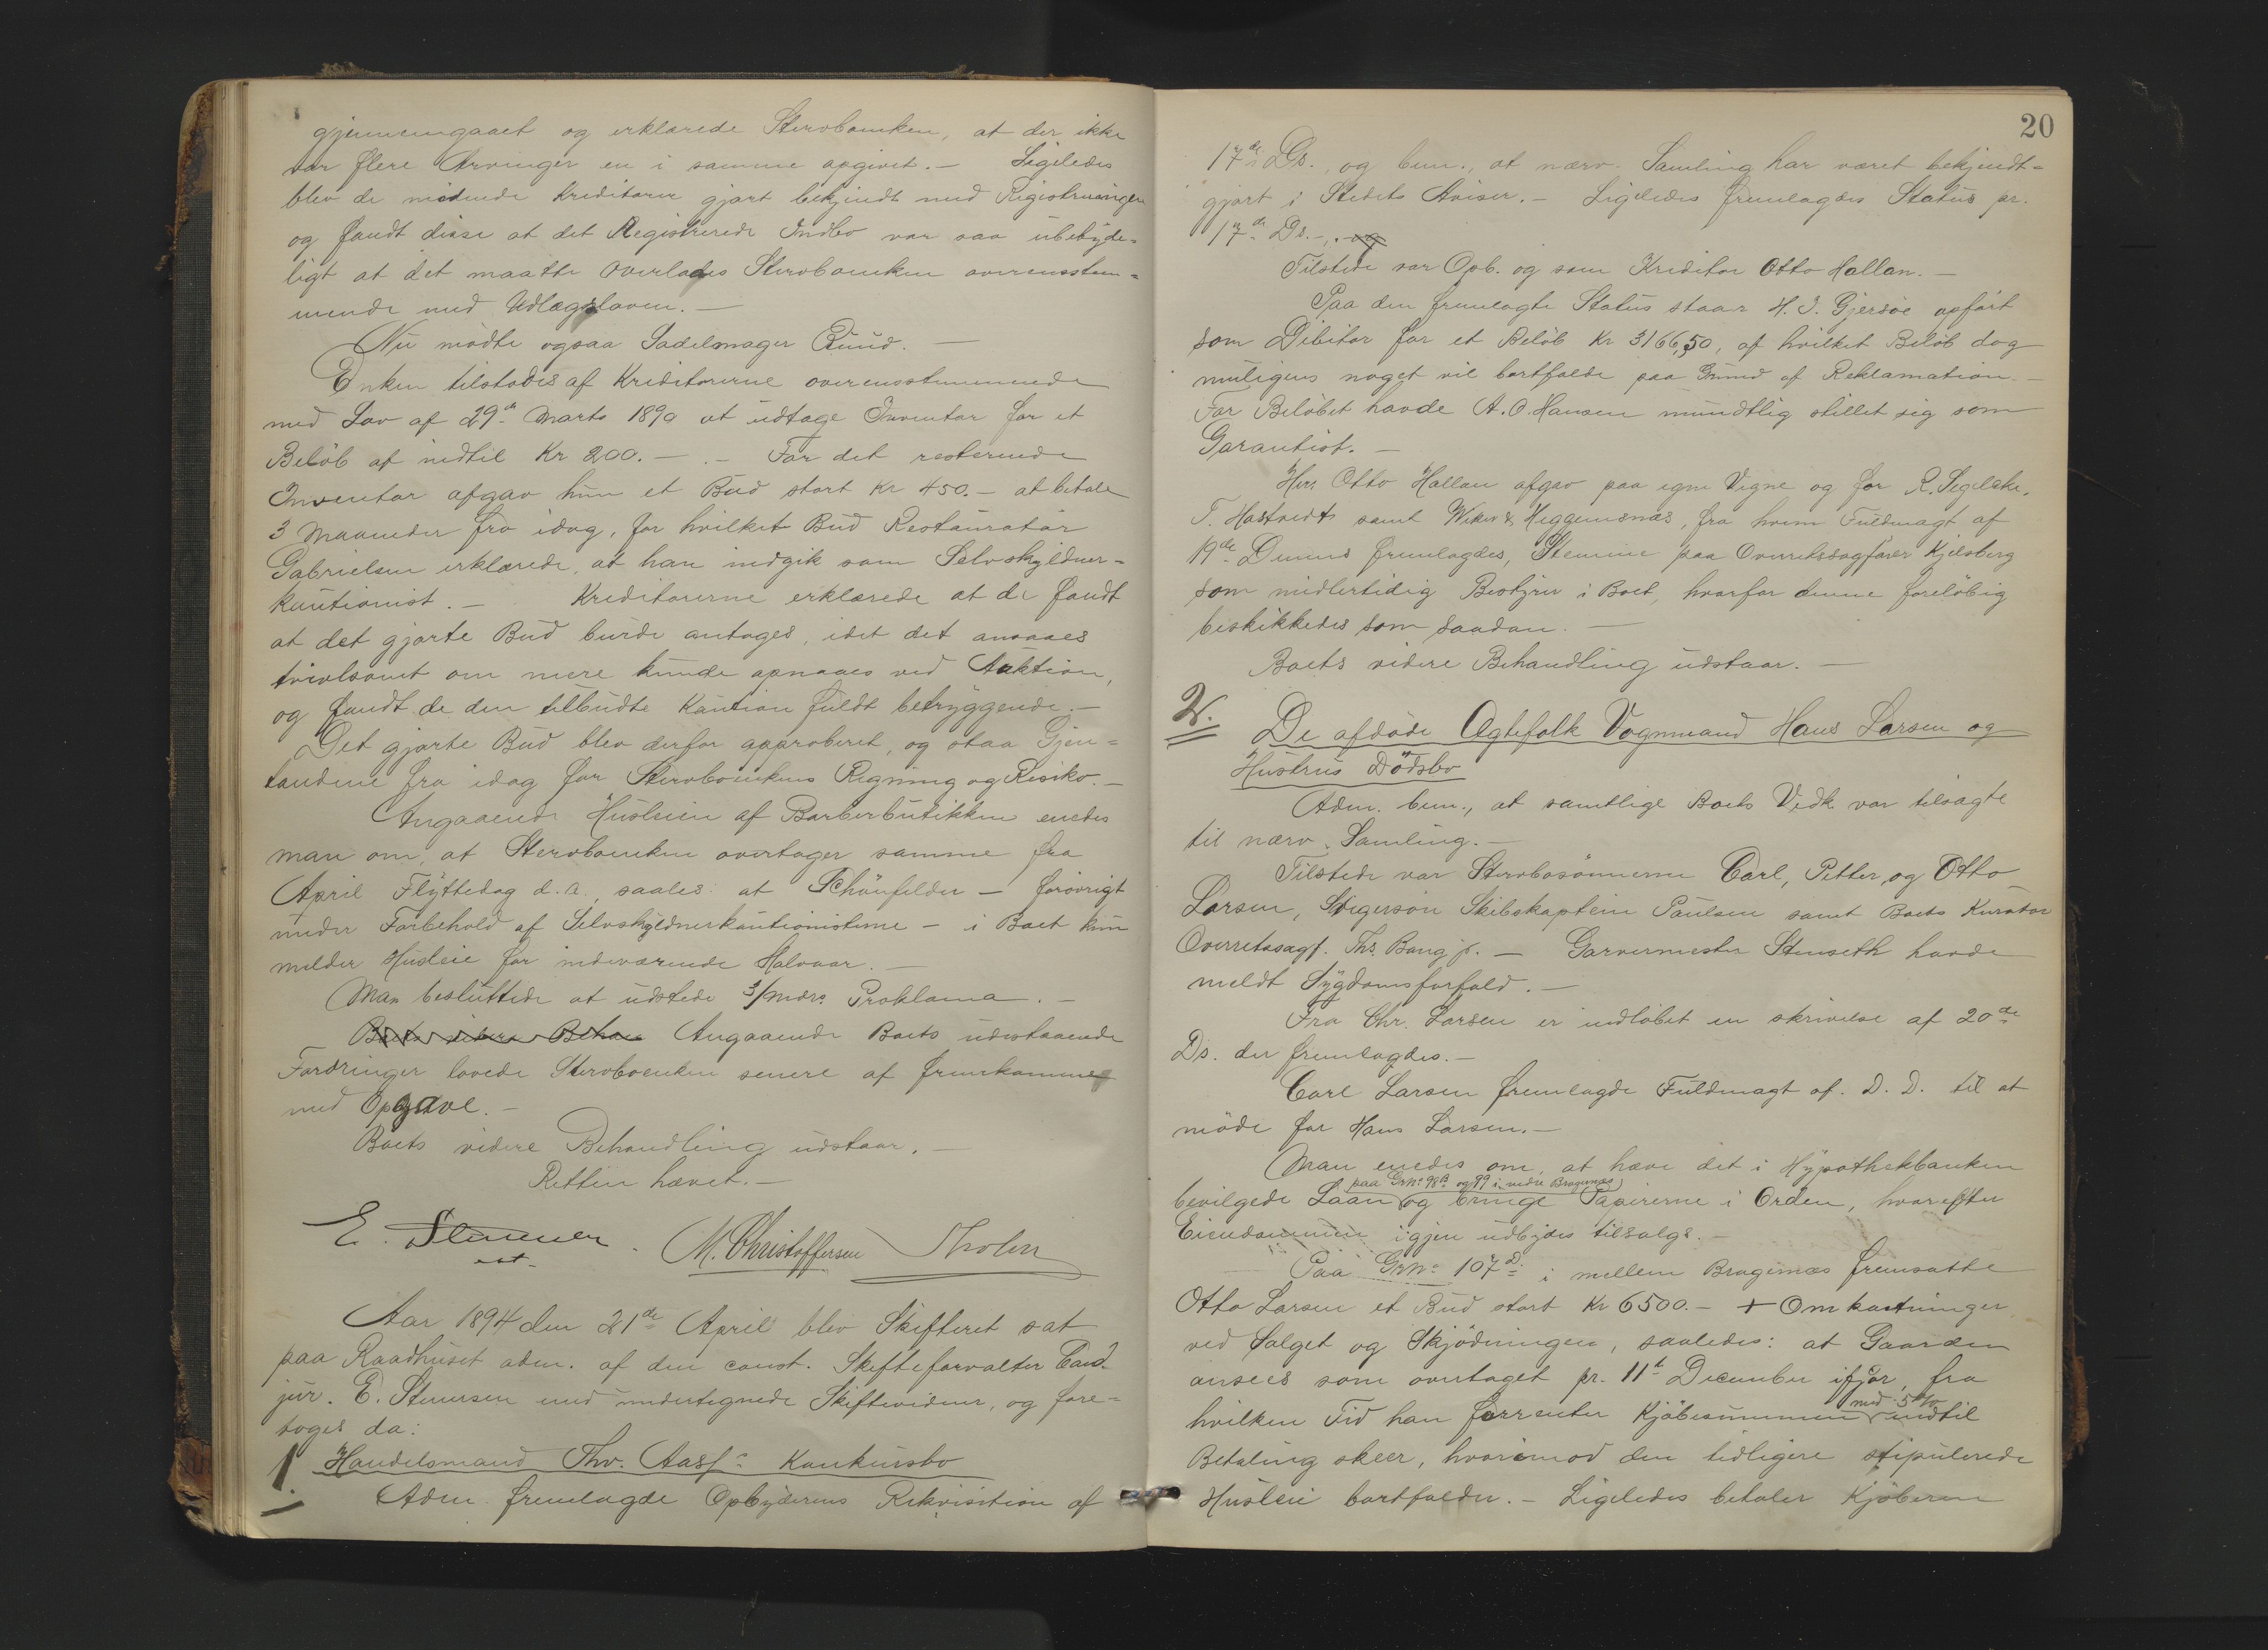 gjennemgaaet og erklærede Stervboenken, at der ikke
var flere Arvinger en i samme opgivet. – Ligeledes
blev de mödende Kreditorer gjort bekjendt med Registreringen
og fandt disse at det Registrerede Indbo var saa ubetyde=
ligt at det maatte overlades Stervboenken overensstem=
mende med Udlægsloven. –
Nu mödte ogsaa Sadelmager Ruud. –
Enken tilstodes af Kreditorerne overensstemmende
med Lov af 29de Marts 1890 at udtage Inventar for et
Belöb af indtil Kr 200. – . – For det resterende
Inventar afgav hun et Bud stort Kr 450. – at betale
3 Maaneder fra idag, for hvilket Bud Restauratör
Gabrielsen erklærede, at han indgik som Selvskyldner=
kautionist. – Kreditorerne erklærede at de fandt
at det gjorte Bud burde antages, idet det ansaaes
tvivlsomt om mere kunde opnaaes ved Auktion,
og fandt de den tilbudte Kaution fuldt betryggende. –
Det gjorte Bud blev derfor approberet, og staa Gjen=
standene fra idag for Stervboenkens Regning og Risiko. –
Angaaende Husleien af Barberbutikken enedes
man om, at Stervboenken overtager samme fra
April Flyttedag d. a. saales: at Schönfelder – forövrigt
under Forbehold af Selvskyldnerkautionisterne – i Boet kun
melder Husleie for indeværende Halvaar. –
Man besluttede at udstede 3/mdrs Proklama. –
Boets videre Behan Angaaende Boets udestaaende
Fordringer lovede Stervboenken senere af fremkomme
med Opgave. –
Boets videre Behandling udstaar. –
Retten hævet. –
E. Stenersen
cst.
M. Christoffersen Tholn
Aar 1894 den 21de April blev Skifteret sat
paa Raadhuset adm. af den const. Skifteforvalter Cand.
jur. E. Stenersen med undertegnede Skiftevidner, og fore=
toges da:
1. Handelsmand Thv. Aass's Konkursbo
Adm. fremlagde Opbyderens Rekvisition af
20
17de Ds., og bem., at nærv. Samling har været bekjendt=
gjort i Stedets Aviser. – Ligeledes fremlagdes Status pr.
17de Ds. –, og
Tilstede var Opb. og som Kreditor Otto Hallan. –
Paa den fremlagte Status staar H. J. Gjersöe opfört
som Debitor for et Belöb Kr 3166,50, af hvilket Belöb dog
muligens noget vil bortfalde paa Grund af Reklamation –
For Belöbet havde A. O. Hansen mundtlig stillet sig som
Garantist. –
Hr. Otto Hallan afgav paa egne Vegne og for R. Segelcke,
T. Hastvedt samt Wiker & Heggemsnæs, fra hvem Fuldmagt af
19de Dennes fremlagdes, Stemme paa Overretssagförer Kjelsberg
som midlertidig Bestyrer i Boet, hvorfor denne forelöbig
beskikkedes som saadan. –
Boets videre Behandling udstaar. –
2. De afdöde Ægtefolk Vognmand Hans Larsen og
Hustrus Dödsbo
Adm. bem., at samtlige Boets Vedk. var tilsagte
til nærv. Samling. –
Tilstede var Stervbosönnerne Carl, Petter og Otto
Larsen, Svigersön Skibskaptein Paulsen samt Boets Kurator
Overretssagf. Ths. Bang jr. – Garvermester Stenseth havde
meldt Sygdomsforfald. –
Fra Chr. Larsen er indlöbet en skrivelse af 20de
Ds. der fremlagdes. –
Carl Larsen fremlagde Fuldmagt af D. D. til at
möde for Hans Larsen. –
Man enedes om, at hæve det i Hypothekbanken
paa Grno 98B og 99 i nedre Bragernæs
bevilgede Laan og bringe Papirerne i Orden, hvorefter
Eiendommen igjen udbydes tilsalgs. –
Paa Grno 107D i mellem Bragernæs fremsatte
Otto Larsen et Bud stort Kr 6500. – + Omkostninger
ved Salget og Skjödningen, saaledes: at Gaarden
ansees som overtaget pr. 11te December ifjor, fra
hvilken Tid han forrenter Kjöbesummen med 5% indtil
Betaling skeer, hvorimod den tidligere stipulerede
Husleie bortfalder. – Ligeledes betaler Kjöberen